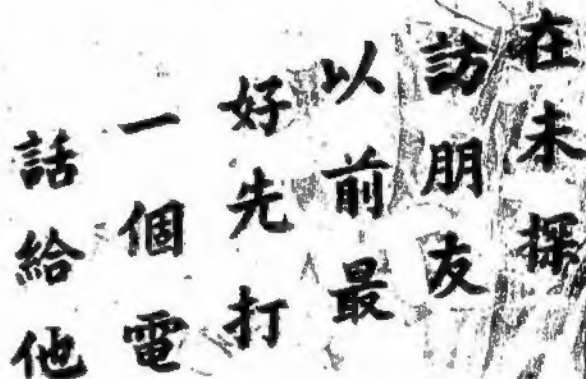 在未探
訪朋友
以前最
好先打
一個電
話給他